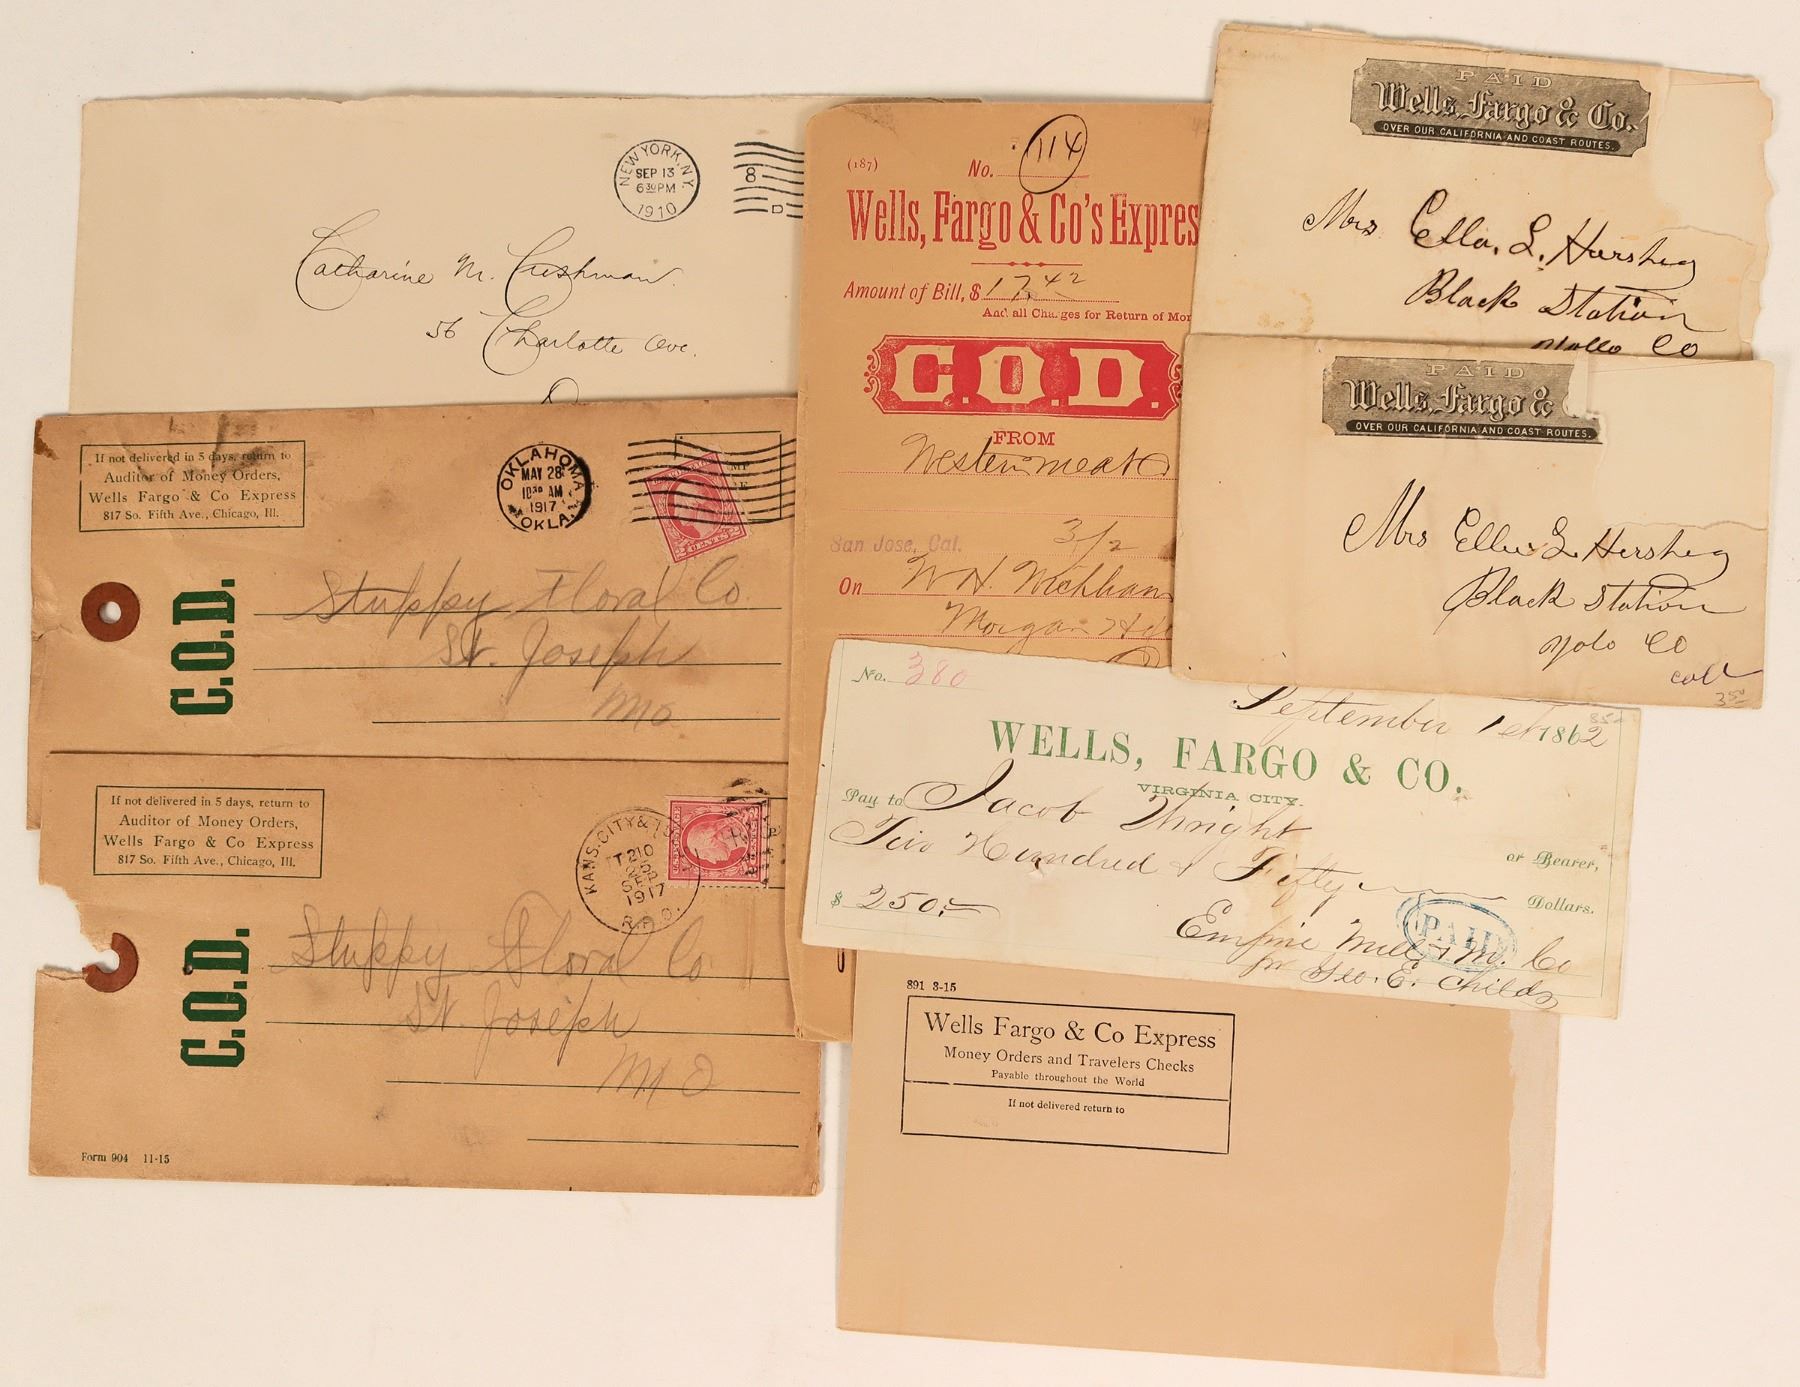 NEW YORK, N.Y.
SEP 13
6 30 PM
1910
8
D
Catharine M. Cushman.
56 Charlotte Ave.
If not delivered in 5 days, return to
Auditor of Money Orders,
Wells Fargo & Co Express
817 So. Fifth Ave., Chicago, Ill.
OKLAHOMA
MAY 28
10 30 AM
1917
OKLA.
2 CENTS 2
C.O.D.
Stuppy Floral Co.
St. Joseph
Mo
If not delivered in 5 days, return to
Auditor of Money Orders,
Wells Fargo & Co Express
817 So. Fifth Ave., Chicago, Ill.
KANS. CITY &
SEP
1917
R.P.O.
C.O.D.
Stuppy Floral Co
St. Joseph
MO
Form 904 11-15
(187)
No. 114
Wells, Fargo & Co's Expres
Amount of Bill, $ 17 42
And all Charges for Return of Mon
C.O.D.
FROM
Western meat Co
San Jose, Cal. 3/2
On W H. Wickham
Morgan
PAID
Wells, Fargo & Co.
OVER OUR CALIFORNIA AND COAST ROUTES.
Mrs Ella. L. Hershey
Black Station
Yollo Co
PAID
Wells, Fargo & C
OVER OUR CALIFORNIA AND COAST ROUTES.
Mrs Ella L Hershey
Black Station
Yolo Co
3 50
No. 380
September 1st 1862
85-
WELLS, FARGO & CO.
VIRGINIA CITY.
Pay to Jacob Wright
or Bearer,
Two Hundred & Fifty
Dollars.
$ 250.-
PAID
Empire Mill & M. Co
pr Geo. E. Childs
891 3-15
Wells Fargo & Co Express
Money Orders and Travelers Checks
Payable throughout the World
If not delivered return to